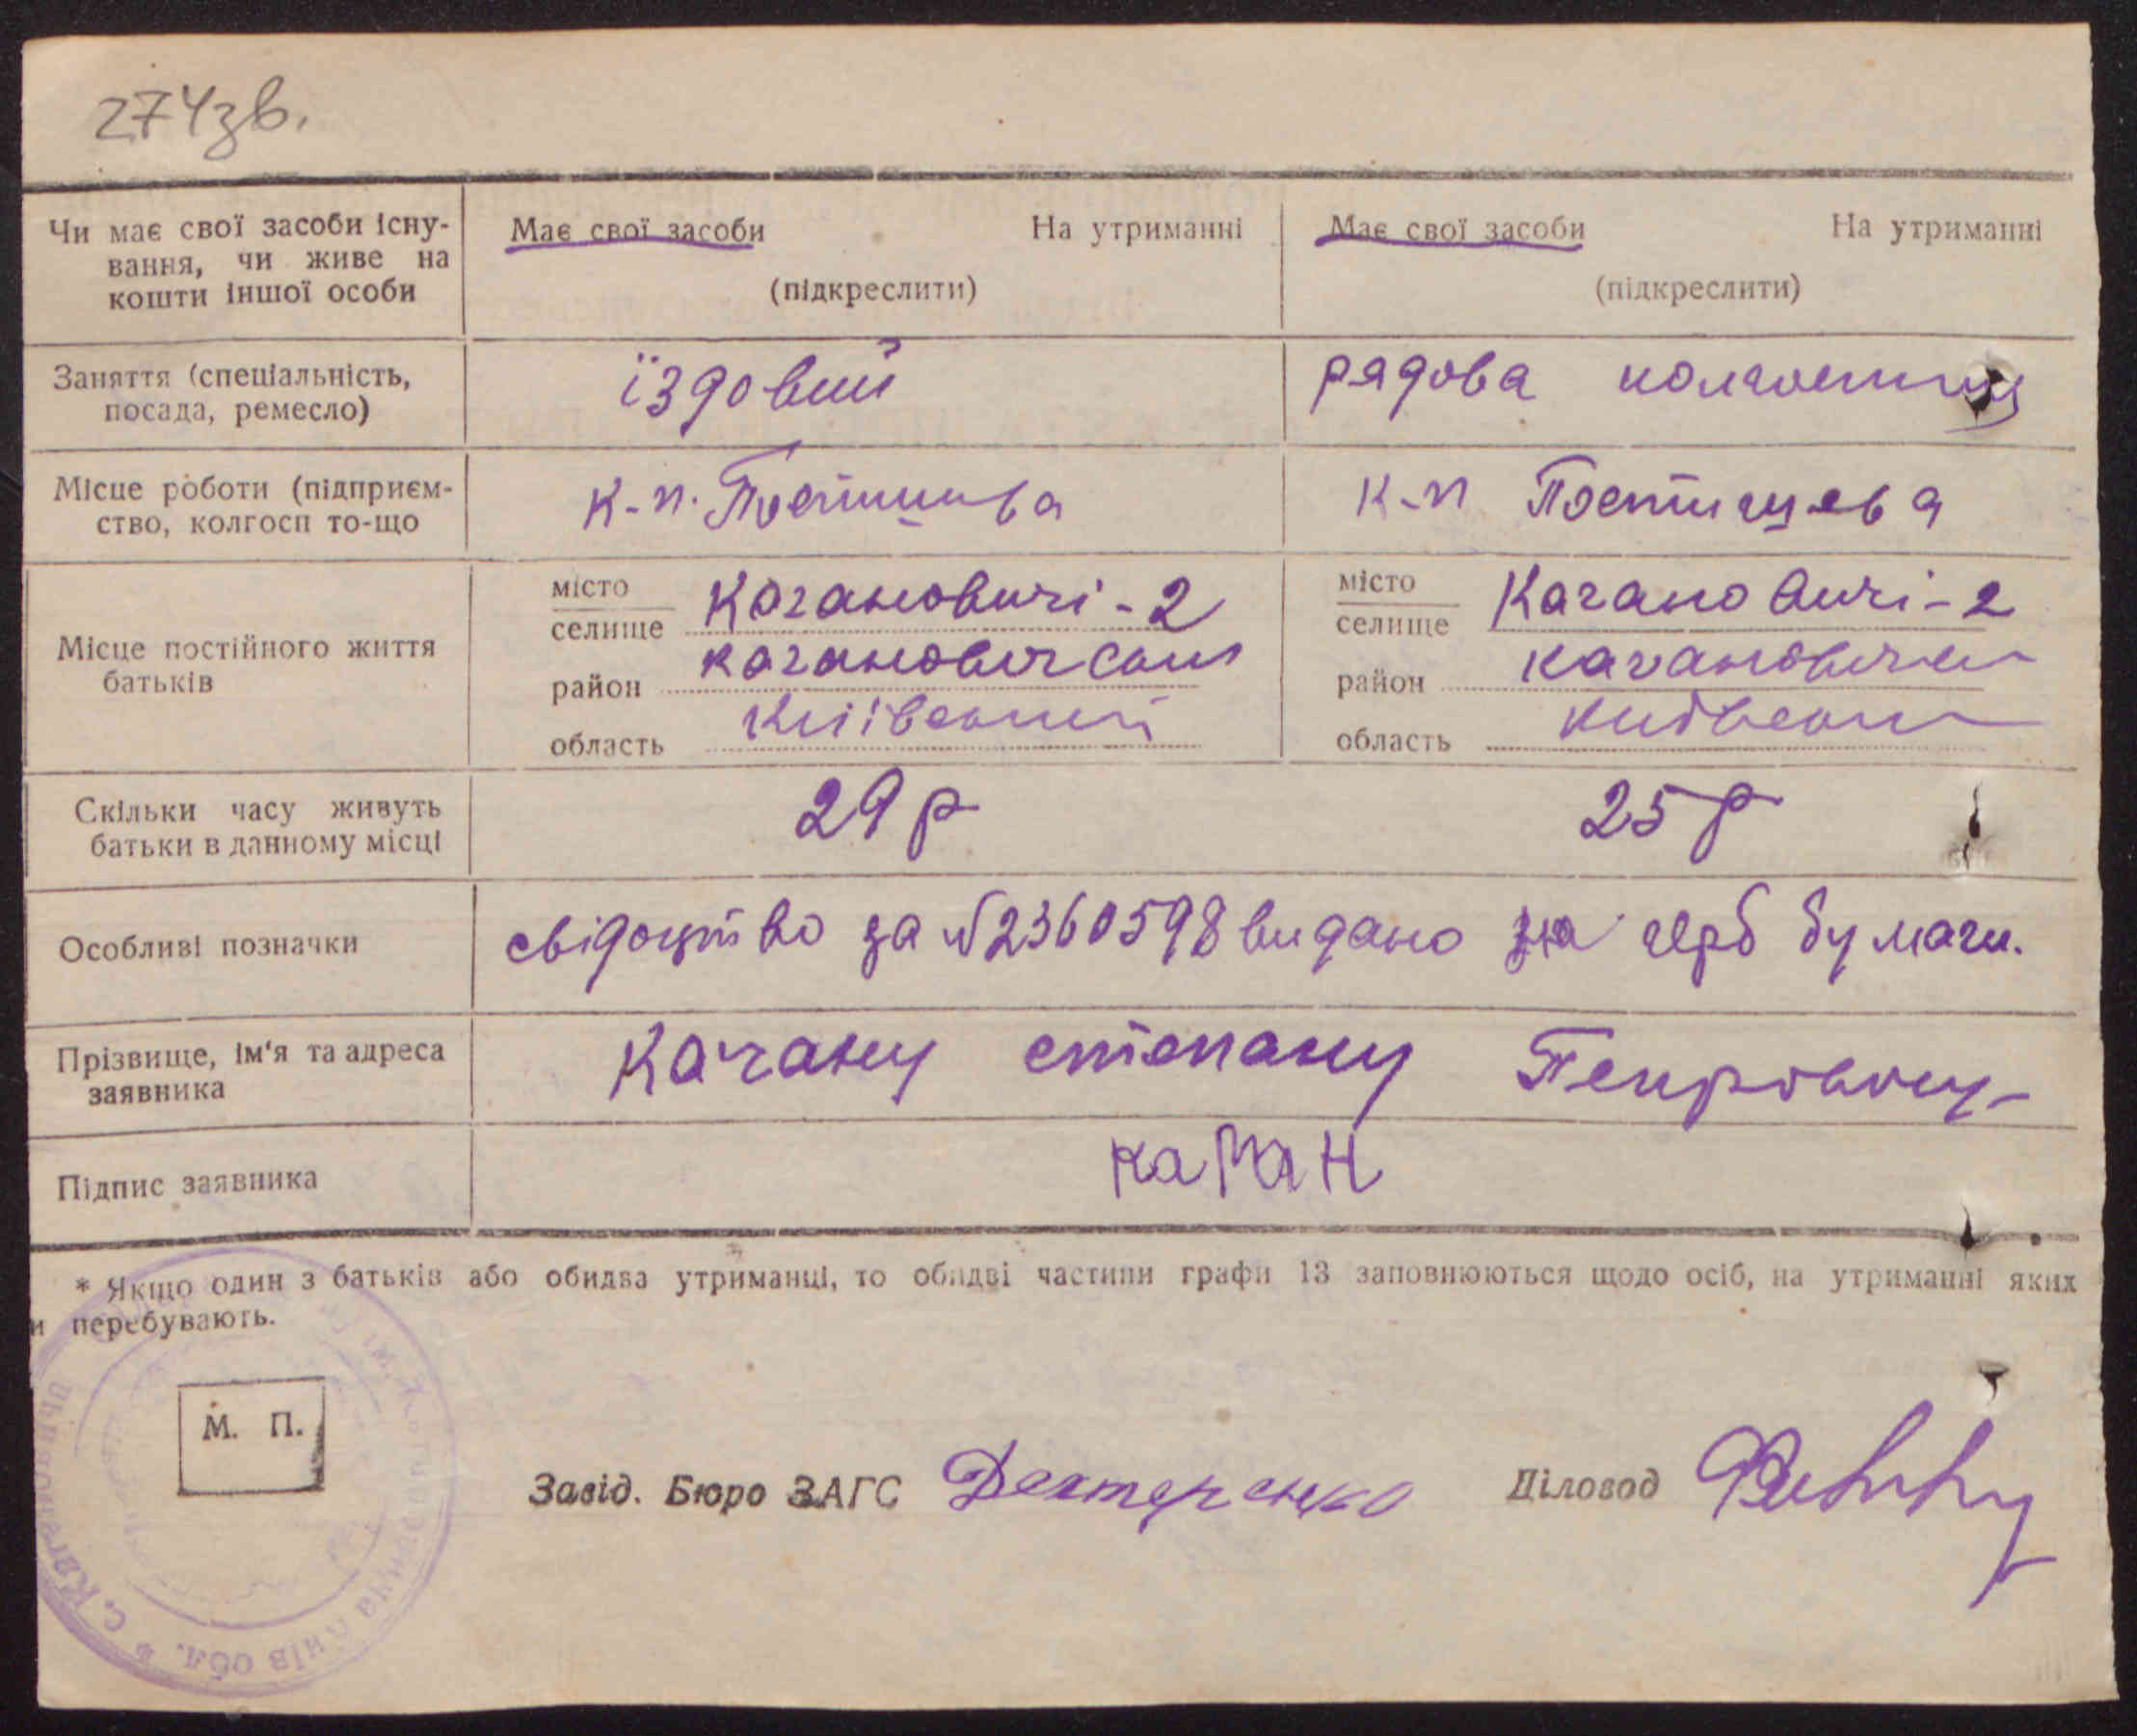 274зв.
Чи має свої засоби існу-
вання, чи живе на
кошти іншої особи
Має свої засоби На утриманні
(підкреслити)
Має свої засоби На утриманні
(підкреслити)
Заняття (спеціальність,
посада, ремесло)
їздовий
рядова
Місце роботи (підприєм-
ство, колгосп то-що
к-п.
к-п Постишева
Місце постійного життя
батьків
місто
селище Кагановичі-2
район
область Київський
місто
селище Кагановичі-2
район
область
Скільки часу живуть
батьки в данному місці
29 р
25 р
Особливі позначки
свідоцтво за №2360598 видано на герб бумаги.
Прізвище, ім'я та адреса
заявника
Качану степану Петровичу
Підпис заявника
качан
* Якщо один з батьків або обидва утриманці, то обидві частини графи 13 заповнюються щодо осіб, на утриманні яких
и перебувають.
М. П.
Завід. Бюро ЗАГС Дехтеренко Діловод